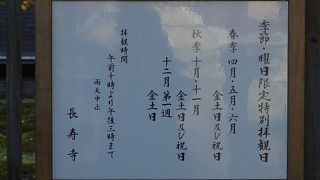 季節・曜日限定特別拝観日
春季 四月・五月・六月
金土日及び祝日
秋季 十月・十一月
金土日及び祝日
十二月第一週
金土日
拝観時間
午前十時より午後三時まで
雨天中止
長寿寺